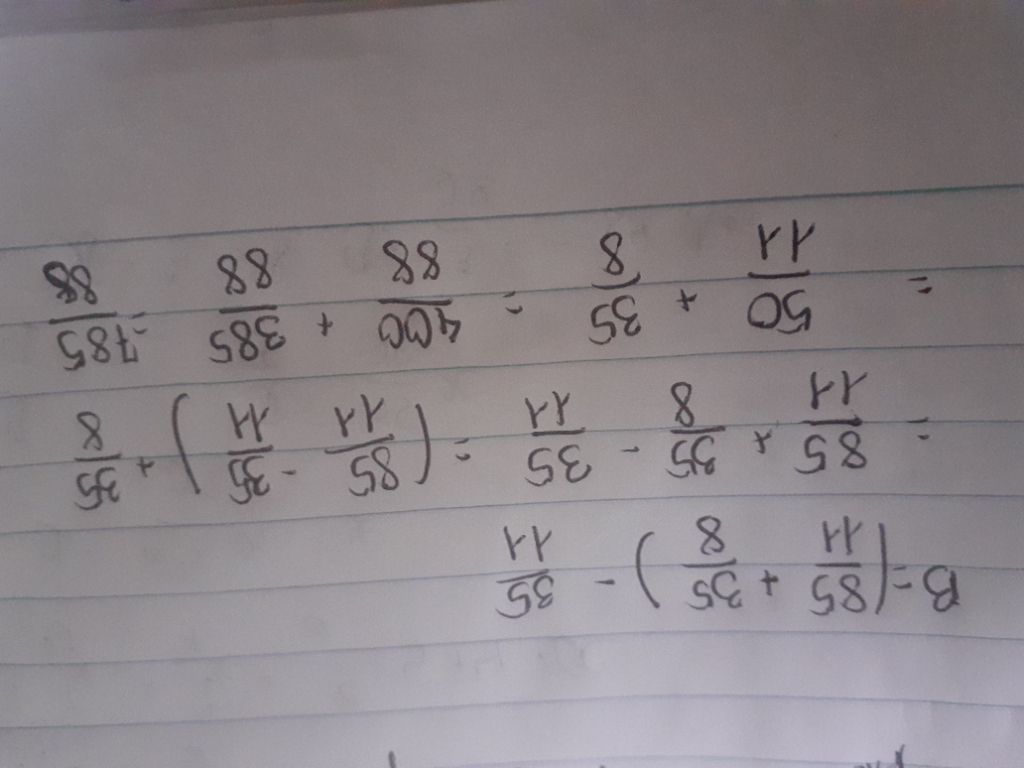 B = (85/11 + 35/8) - 35/11
= 85/11 + 35/8 - 35/11 = (85/11 - 35/11) + 35/8
= 50/11 + 35/8 = 400/88 + 385/88 = 785/88